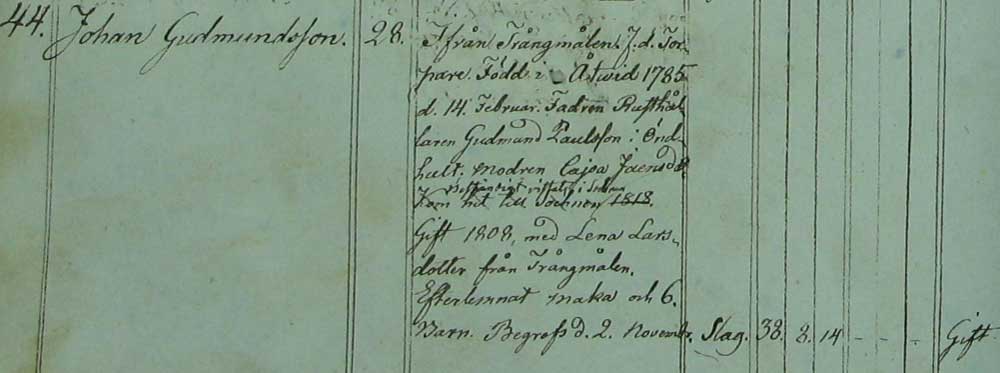 44. Johan Gudmundsson. 28. Ifrån Trångmålen. J.d. Tor-
pare. Född i Åtwid 1785
d. 14. Februar. Fadren Rusthål-
laren Gudmund Paulsson i Önd-
hult. Modren Cajsa Jaensd.
Beständigt vistats i Socknen
Kom hit till Socknen 1818.
Gift 1808, med Lena Lars-
dotter från Trångmålen.
Efterlemnat maka och 6.
Barn. Begrofs d. 2. Novembr. Slag. 38. 8. 14 - - - Gift